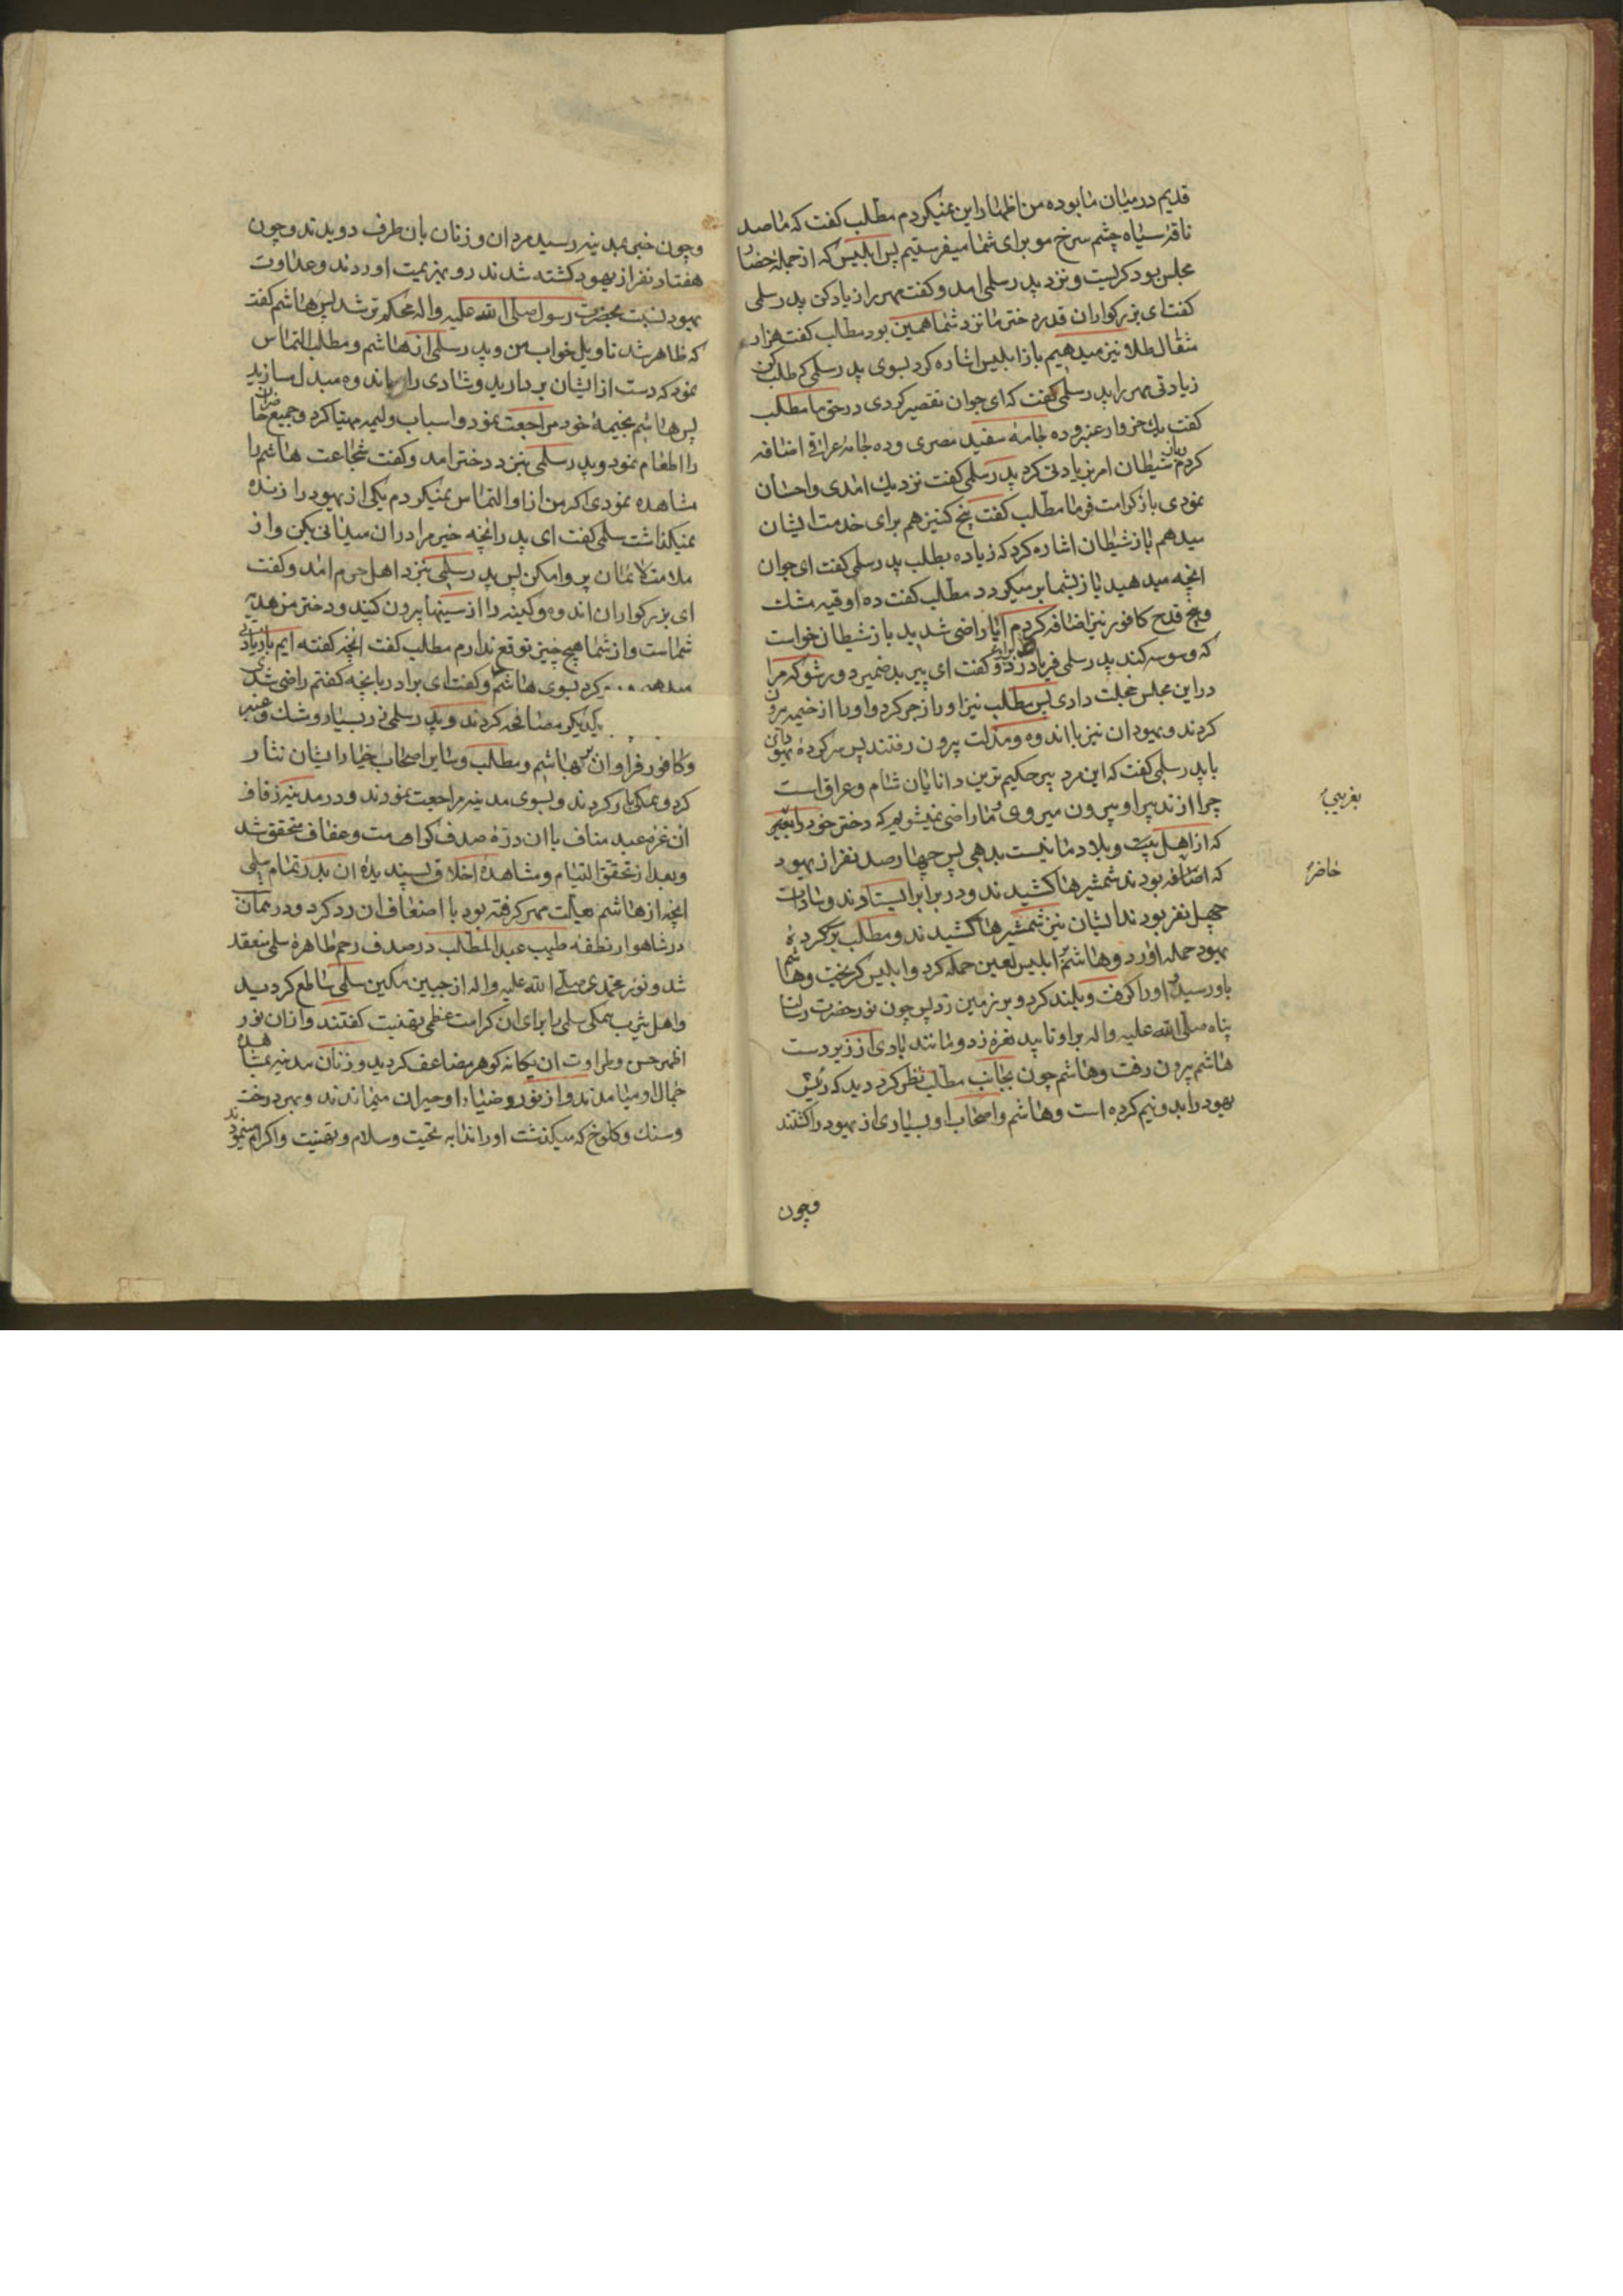 قدیم در میان ما بوده من اظهار این نمیکردم مطلب کفت که ما صد
ناقهٔ سیاه چشم سرخ مو برای شما میفرستیم پس ابلیس که از جملهٔ حضار
مجلس بود کریست و نزد پدر سلمی امد و کفت مهر را زیاد کن پدر سلمی
کفت ای بزرکواران قدر دختر ما نزد شما همین بود مطلب کفت هزار
مثقال طلا نیز میدهیم باز ابلیس اشاره کرد بسوی پدر سلمی که طلب کن
زیادتی مهر را پدر سلمی کفت که ای جوان تقصیر کردی در حق ما مطلب
کفت یک خروار عنبر و ده جامهٔ سفید مصری و ده جامه عراقی اضافه
کردم باز شیطان امر بزیادتی کرد پدر سلمی کفت نزدیک امدی و احسان
نمودی باز کرامت فرما مطلب کفت پنج کنیز هم برای خدمت ایشان
میدهم باز شیطان اشاره کرد که زیاده بطلب پدر سلمی کفت ای جوان
انچه میدهید باز بشما بر میکردد مطلب کفت ده اوقیه مشک
و پنج قدح کافور نیز اضافه کردم ایا راضی شدید باز شیطان خواست
که وسوسه کند پدر سلمی فریاد زد بر او و کفت ای پیر بد ضمیر دور شو که مرا
در این مجلس خجلت دادی پس مطلب نیز او را زجر کرد و او را از خیمه بیرون
کردند و یهودان نیز با اندوه و مذلت بیرون رفتند پس سر کردهٔ یهودان
با پدر سلمی کفت که این مرد پیر حکیم ترین دانایان شام و عراق است
چرا از تدبیر او بیرون میروی و ما راضی نمیشویم که دختر خود را بغریبی
که از اهل بیت و بلاد ما نیست بدهی پس چهار صد نفر از یهود
که اضافه بودند شمشیرها کشیدند و در برابر ایستادند و سادات
چهل نفر بودند ایشان نیز شمشیرها کشیدند و مطلب بر سرکردهٔ
یهود حمله اورد و هاشم بر ابلیس لعین حمله کرد و ابلیس کریخت و هاشم
باو رسید و او را کرفت و بلند کرد و بر زمین زد پس چون نور حضرت رسالت
پناه صلی الله علیه و اله بر او تابید نعره زد و مانند بادی از زیر دست
هاشم بیرون رفت و هاشم چون بجانب مطلب نظر کرد دید که رئیس
یهود را بدو نیم کرده است و هاشم و اصحاب او بسیاری از یهود را کشتند
وچون
بغریبی
حاضر
و چون خبر بمدینه رسید مردان و زنان بان طرف دویدند و چون
هفتاد نفر از یهود کشته شدند رو بهزیمت اوردند و عداوت
یهود نسبت بحضرت رسول صلی الله علیه و اله محکم تر شد پس هاشم کفت
که ظاهر شد تاویل خواب من و پدر سلمی از هاشم و مطلب التماس
نمود که دست از ایشان بردارید و شادی را باندوه مبدل مسازید
پس هاشم بخیمهٔ خود مراجعت نمود و اسباب ولیمه مهیا کرد و جمیع حاضران
را اطعام نمود و پدر سلمی بنزد دختر امد و کفت شجاعت هاشم را
مشاهده نمودی اکر من از او التماس نمیکردم یکی از یهود را زنده
نمیکذاشت سلمی کفت ای پدر انچه خیر مرا در ان میدانی بکن و از
ملامت لائمان پروا مکن پس پدر سلمی بنزد اهل حرم امد و کفت
ای بزرکواران اندوه و کینه را از سینها بیرون کنید و دختر من هدیهٔ
شماست و از شما هیچ چیز توقع ندارم مطلب کفت انچه کفته ایم بازیادتی
میدهیم ... کرد بسوی هاشم و کفت ای برادر بانچه کفتم راضی شدی
... یکدیکر مصافحه کردند و پدر سلمی زر بسیار و مشک و عنبر
و کافور فراوان بر هاشم و مطلب و سایر اصحاب خیار ایشان نثار
کرد و همکی بار کردند و بسوی مدینه مراجعت نمودند و در مدینه زفاف
ان غرهٔ عبد مناف با ان درهٔ صدف کرامت و عفاف متحقق شد
و بعد از تحقق التیام و مشاهدهٔ اخلاق پسندیدهٔ ان بدر تمام سلمی
انچه از هاشم بعلت مهر کرفته بود با اضعاف ان رد کرد و در همان
در شاهوار نطفه طیب عبد المطلب در صدف رحم طاهرهٔ سلمی منعقد
شد و نور محمدی صلی الله علیه و اله از جبین مکین سلمی ساطع کردید
و اهل یثرب همکی سلمی را برای ان کرامت عظمی تهنیت کفتند و از ان نور
اظهر حسن و طراوت ان یکانه کوهر مضاعف کردید و زنان مدینه بمشاهدهٔ
جمال او میامدند و از نور و ضیاء او حیران میماندند و بهر درخت
و سنک و کلوخ که میکذشت او را ندا به تحیت و سلام و تهنیت و اکرام مینمودند